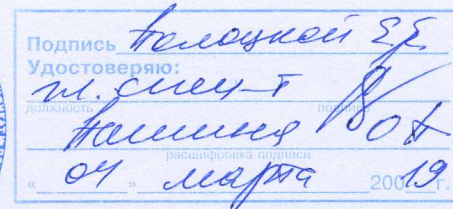 Подпись Полоцкой Е.Б.
Удостоверяю:
гл. спец-т
должность подпись
расшифровка подписи
«04» марта 2019 г.